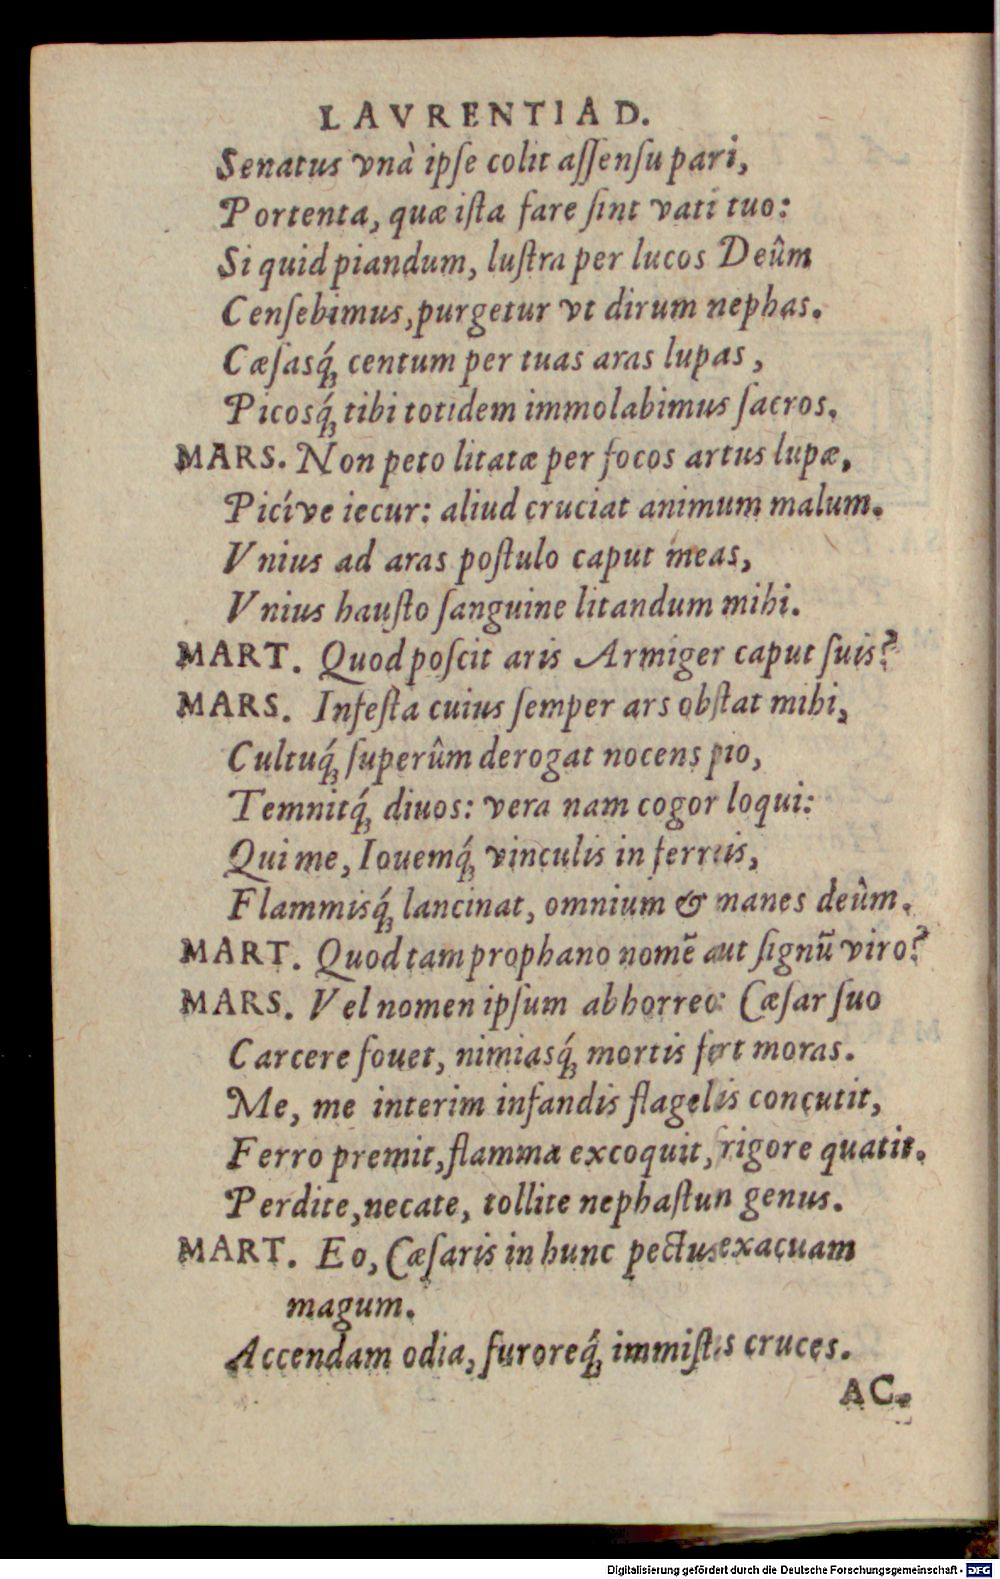 LAVRENTIAD.
Senatus vnà ipſe colit aſſenſu pari,
Portenta, quæ iſta fare ſint vati tuo:
Si quid piandum, luſtra per lucos Deûm
Cenſebimus, purgetur vt dirum nephas.
Cæſasq́ꝫ centum per tuas aras lupas,
Picosq́ꝫ tibi totidem immolabimus ſacros.
MARS. Non peto litatæ per focos artus lupæ,
Picíve iecur: aliud cruciat animum malum.
Vnius ad aras poſtulo caput meas,
Vnius hauſto ſanguine litandum mihi.
MART. Quod poſcit aris Armiger caput ſuis?
MARS. Infeſta cuius ſemper ars obſtat mihi,
Cultuq́ꝫ ſuperûm derogat nocens pio,
Temnitq́ꝫ diuos: vera nam cogor loqui:
Qui me, Iouemq́ꝫ vinculis in ferreis,
Flammisq́ꝫ lancinat, omnium & manes deûm.
MART. Quod tam prophano nomē aut ſignū viro?
MARS. Vel nomen ipſum abhorreo: Cæſar ſuo
Carcere fouet, nimiasq́ꝫ mortis fert moras.
Me, me interim infandis flagellis concutit,
Ferro premit, flamma excoquit, frigore quatit.
Perdite, necate, tollite nephaſtun genus.
MART. Eo, Cæſaris in hunc pectus exacuam
magum.
Accendam odia, furoreq́ꝫ immiſtas cruces.
AC.
Digitalisierung gefördert durch die Deutsche Forschungsgemeinschaft - DFG